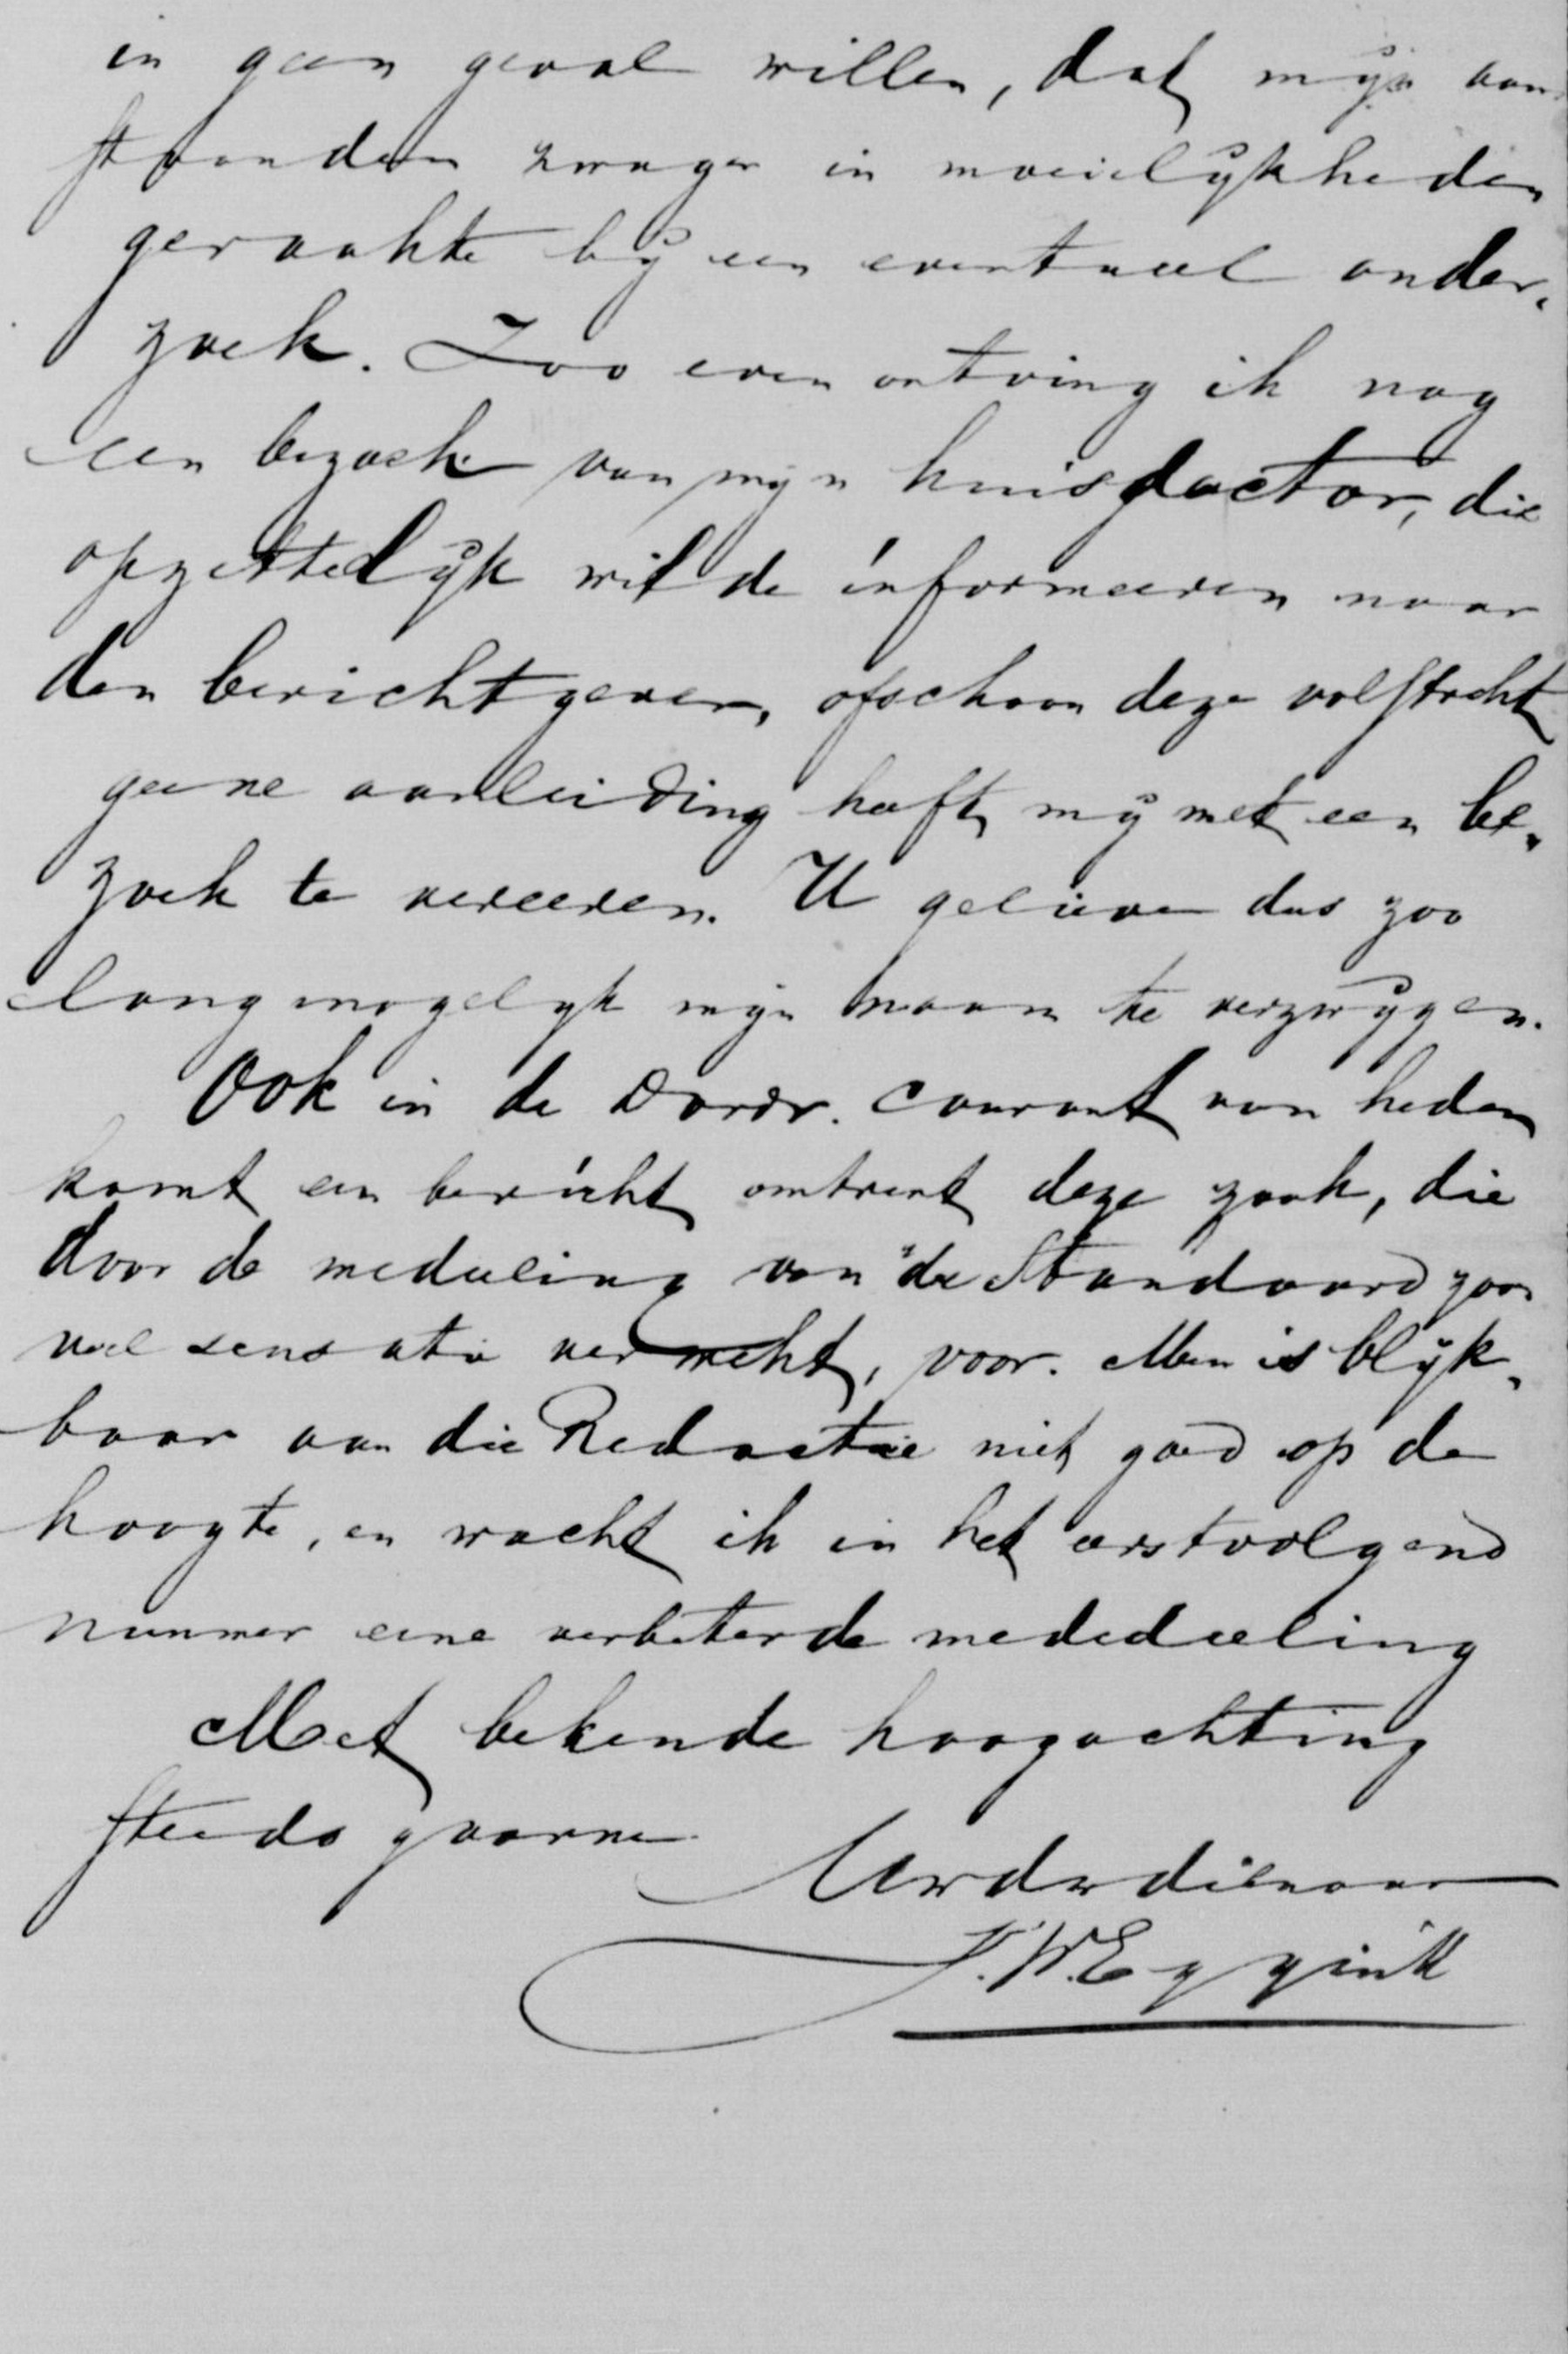 in geen geval willen, dat mijn aan
staanden zwager in moeielijkheden
geraakte bij een eventueel onder„
zoek. Zoo even ontving ik nog
een bezoek van mijn huisdoctor, die
opzettelijk wilde informeeren naar
den berichtgever, ofschoon deze volstrekt
geene aanleiding heeft, mij met een be„
zoek te vereeren. U gelieve dus zoo
lang mogelijk mijn naam te verzwijgen.
Ook in de Dordr. Courant van heden
komt een bericht omtrent deze zaak, die
door de mededeeling van "de Standaard zoo
veel sensatie verwekt, voor. Men is blijk„
baar aan die Redactie niet goed op de
hoogte, en wacht ik in het eerstvolgend
nummer eene verbeterde mededeeling
Met bekende hoogachting
steeds gaarne
Uwdwdienaar
J. W. Eggink